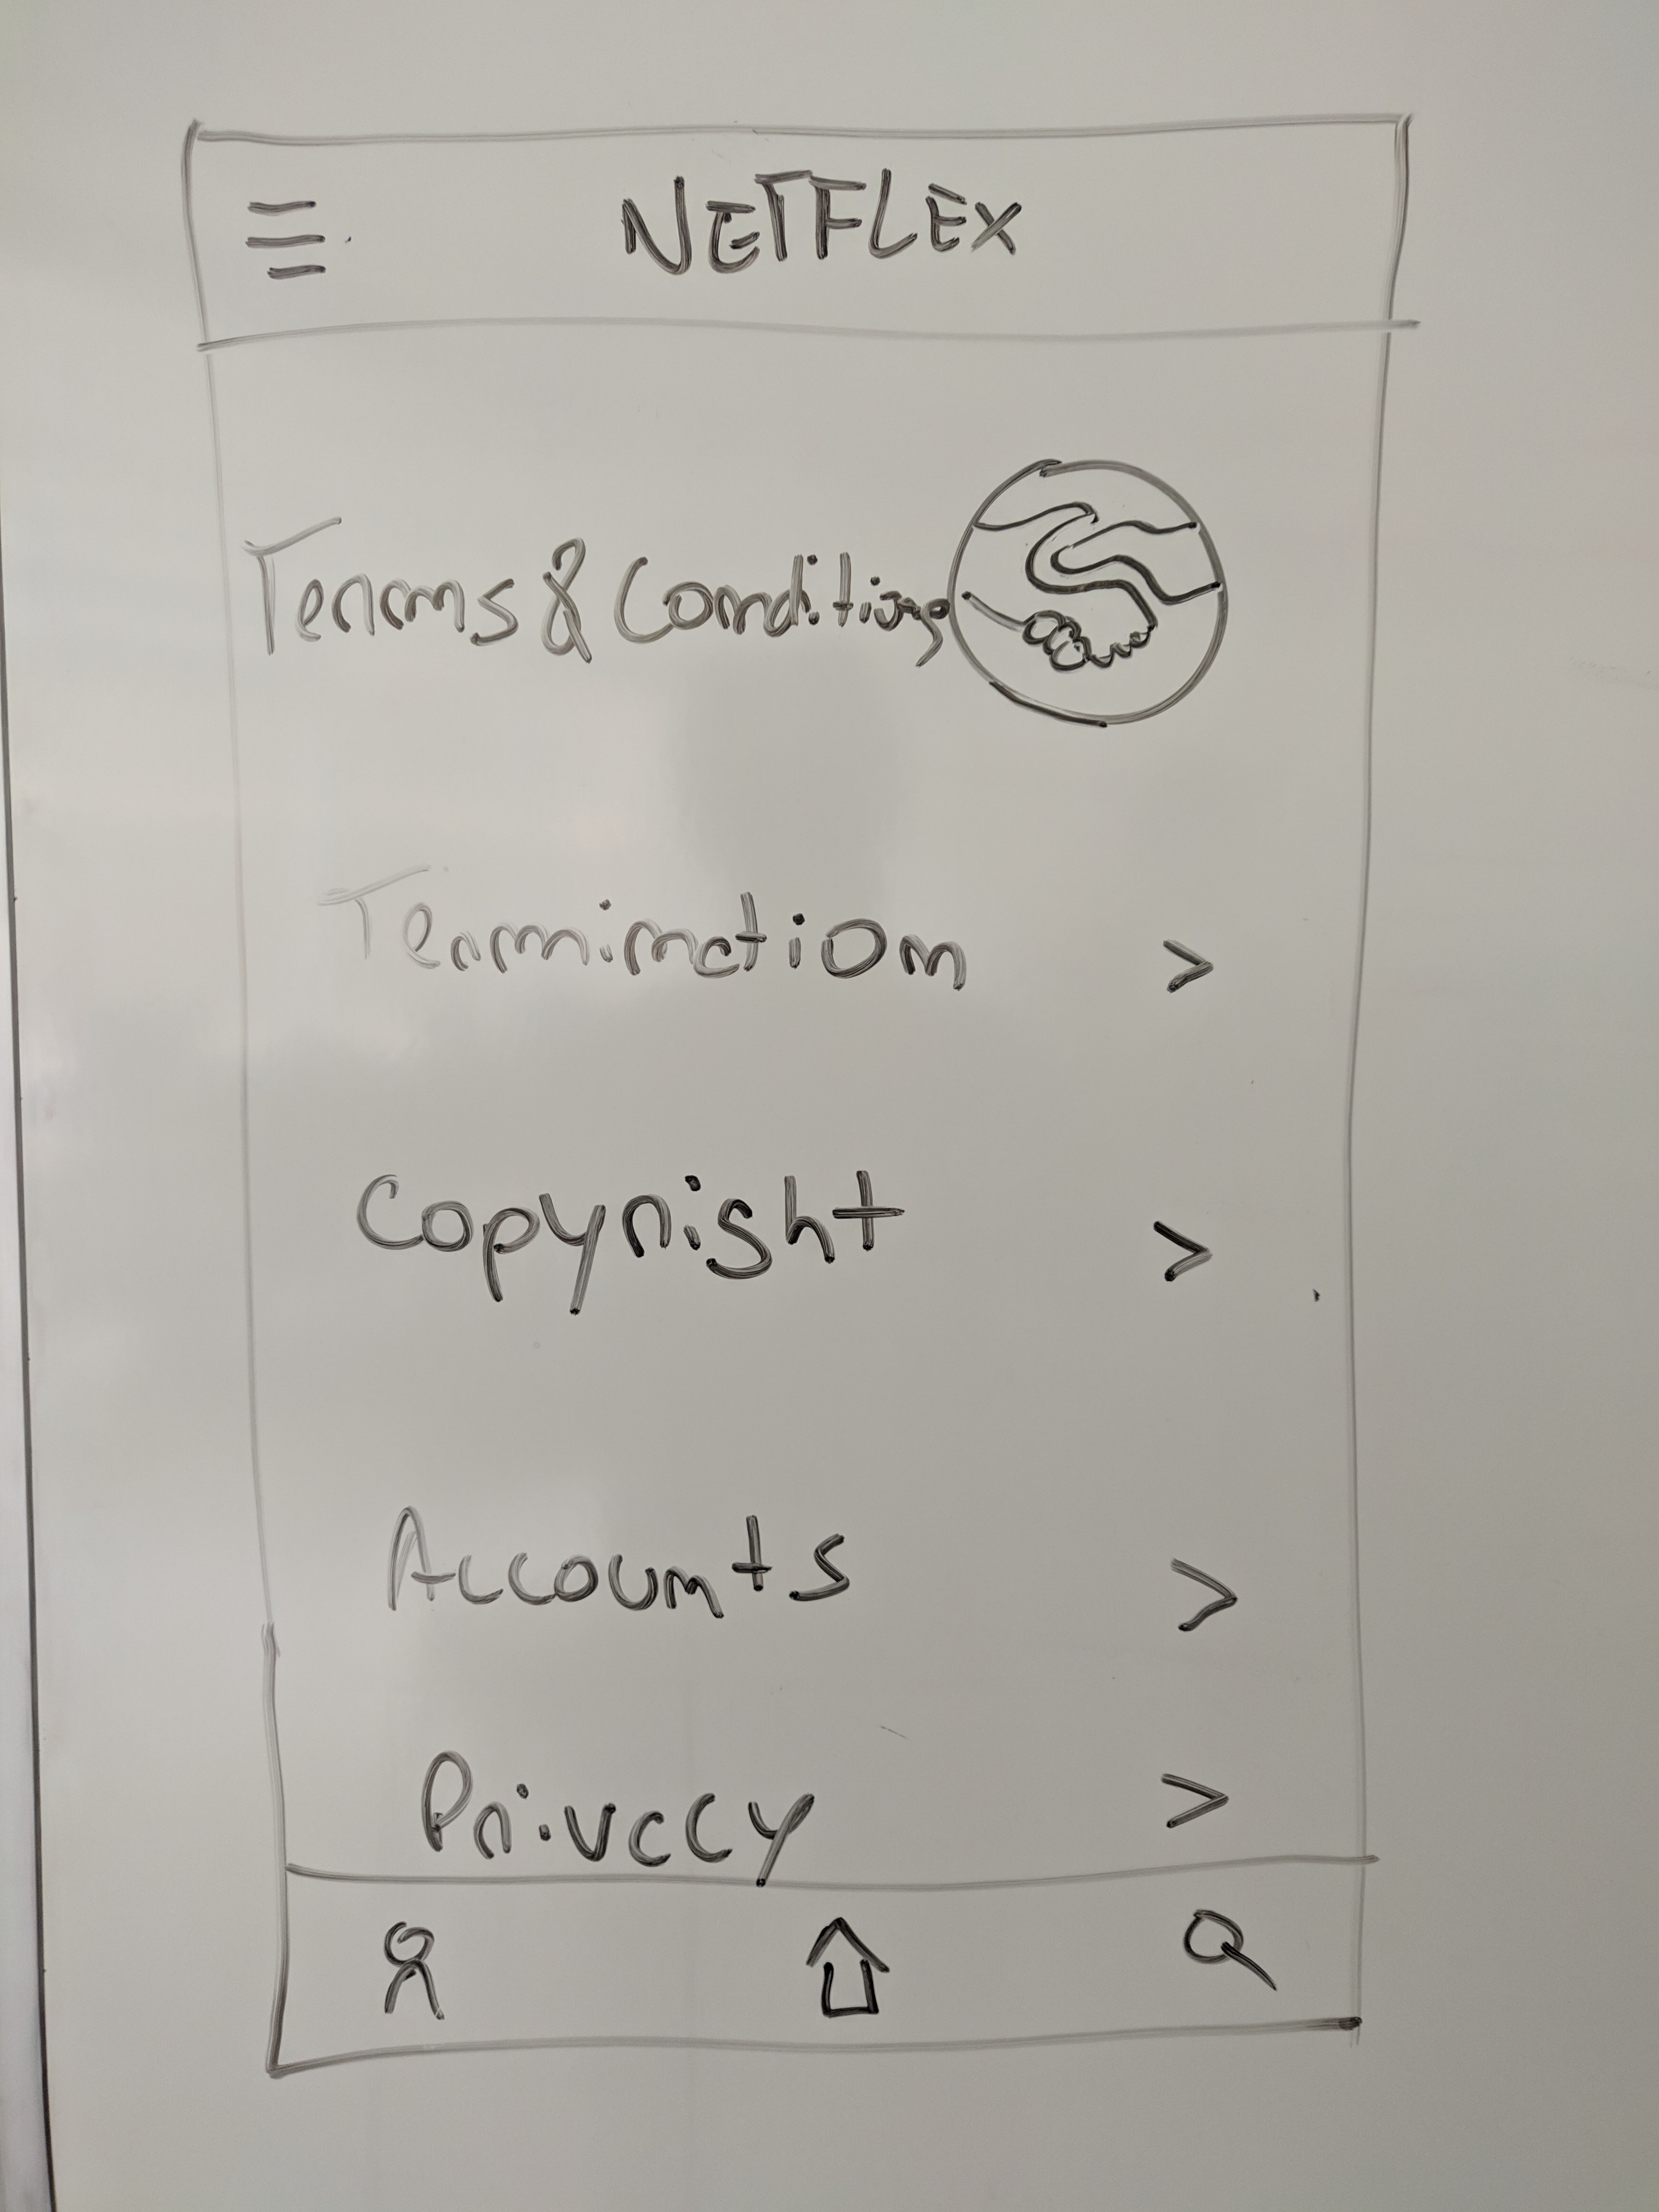 NETFLEX
Terms & Conditions
Termination >
Copyright >
Accounts >
Privacy >